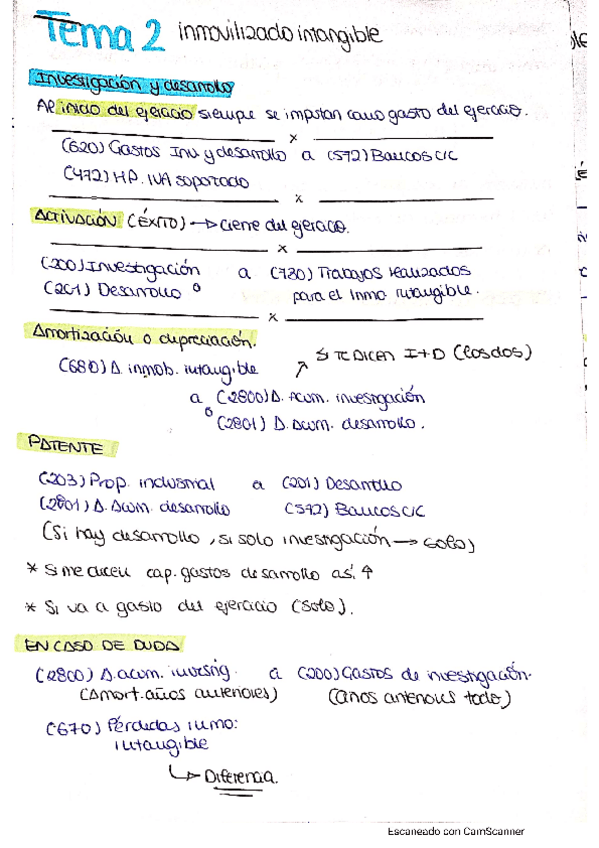 Tema 2 inmovilizado intangible
Investigación y desarrollo
Al inicio del ejercicio siempre se imputan como gasto del ejercicio.
x
(620) Gastos Inv y desarrollo a (572) Bancos c/c
(472) HP. IVA soportado
x
Activación (ÉXITO) → Cierre del ejercicio.
x
(200) Investigación a (730) Trabajos realizados
(201) Desarrollo para el Inmo Intangible.
x
Amortización o depreciación.
SI TE DICEN I+D (los dos)
(680) A. inmob. intangible
a (2800) A. Acum. investigación
o (2801) A. Acum. desarrollo.
PATENTE
(203) Prop. industrial a (201) Desarrollo
(2801) A. Acum. desarrollo (572) Bancos c/c
(Si hay desarrollo, si solo investigación → solo)
* Si me dicen cap. gastos desarrollo así ↑
* Si va a gasto del ejercicio (solo).
EN CASO DE DUDA
(2800) A. acum. investig. a (200) Gastos de investigación.
(Amort. años anteriores) (años anteriores todo)
(670) Pérdidas inmo:
intangible
↳ Diferencia.
Escaneado con CamScanner